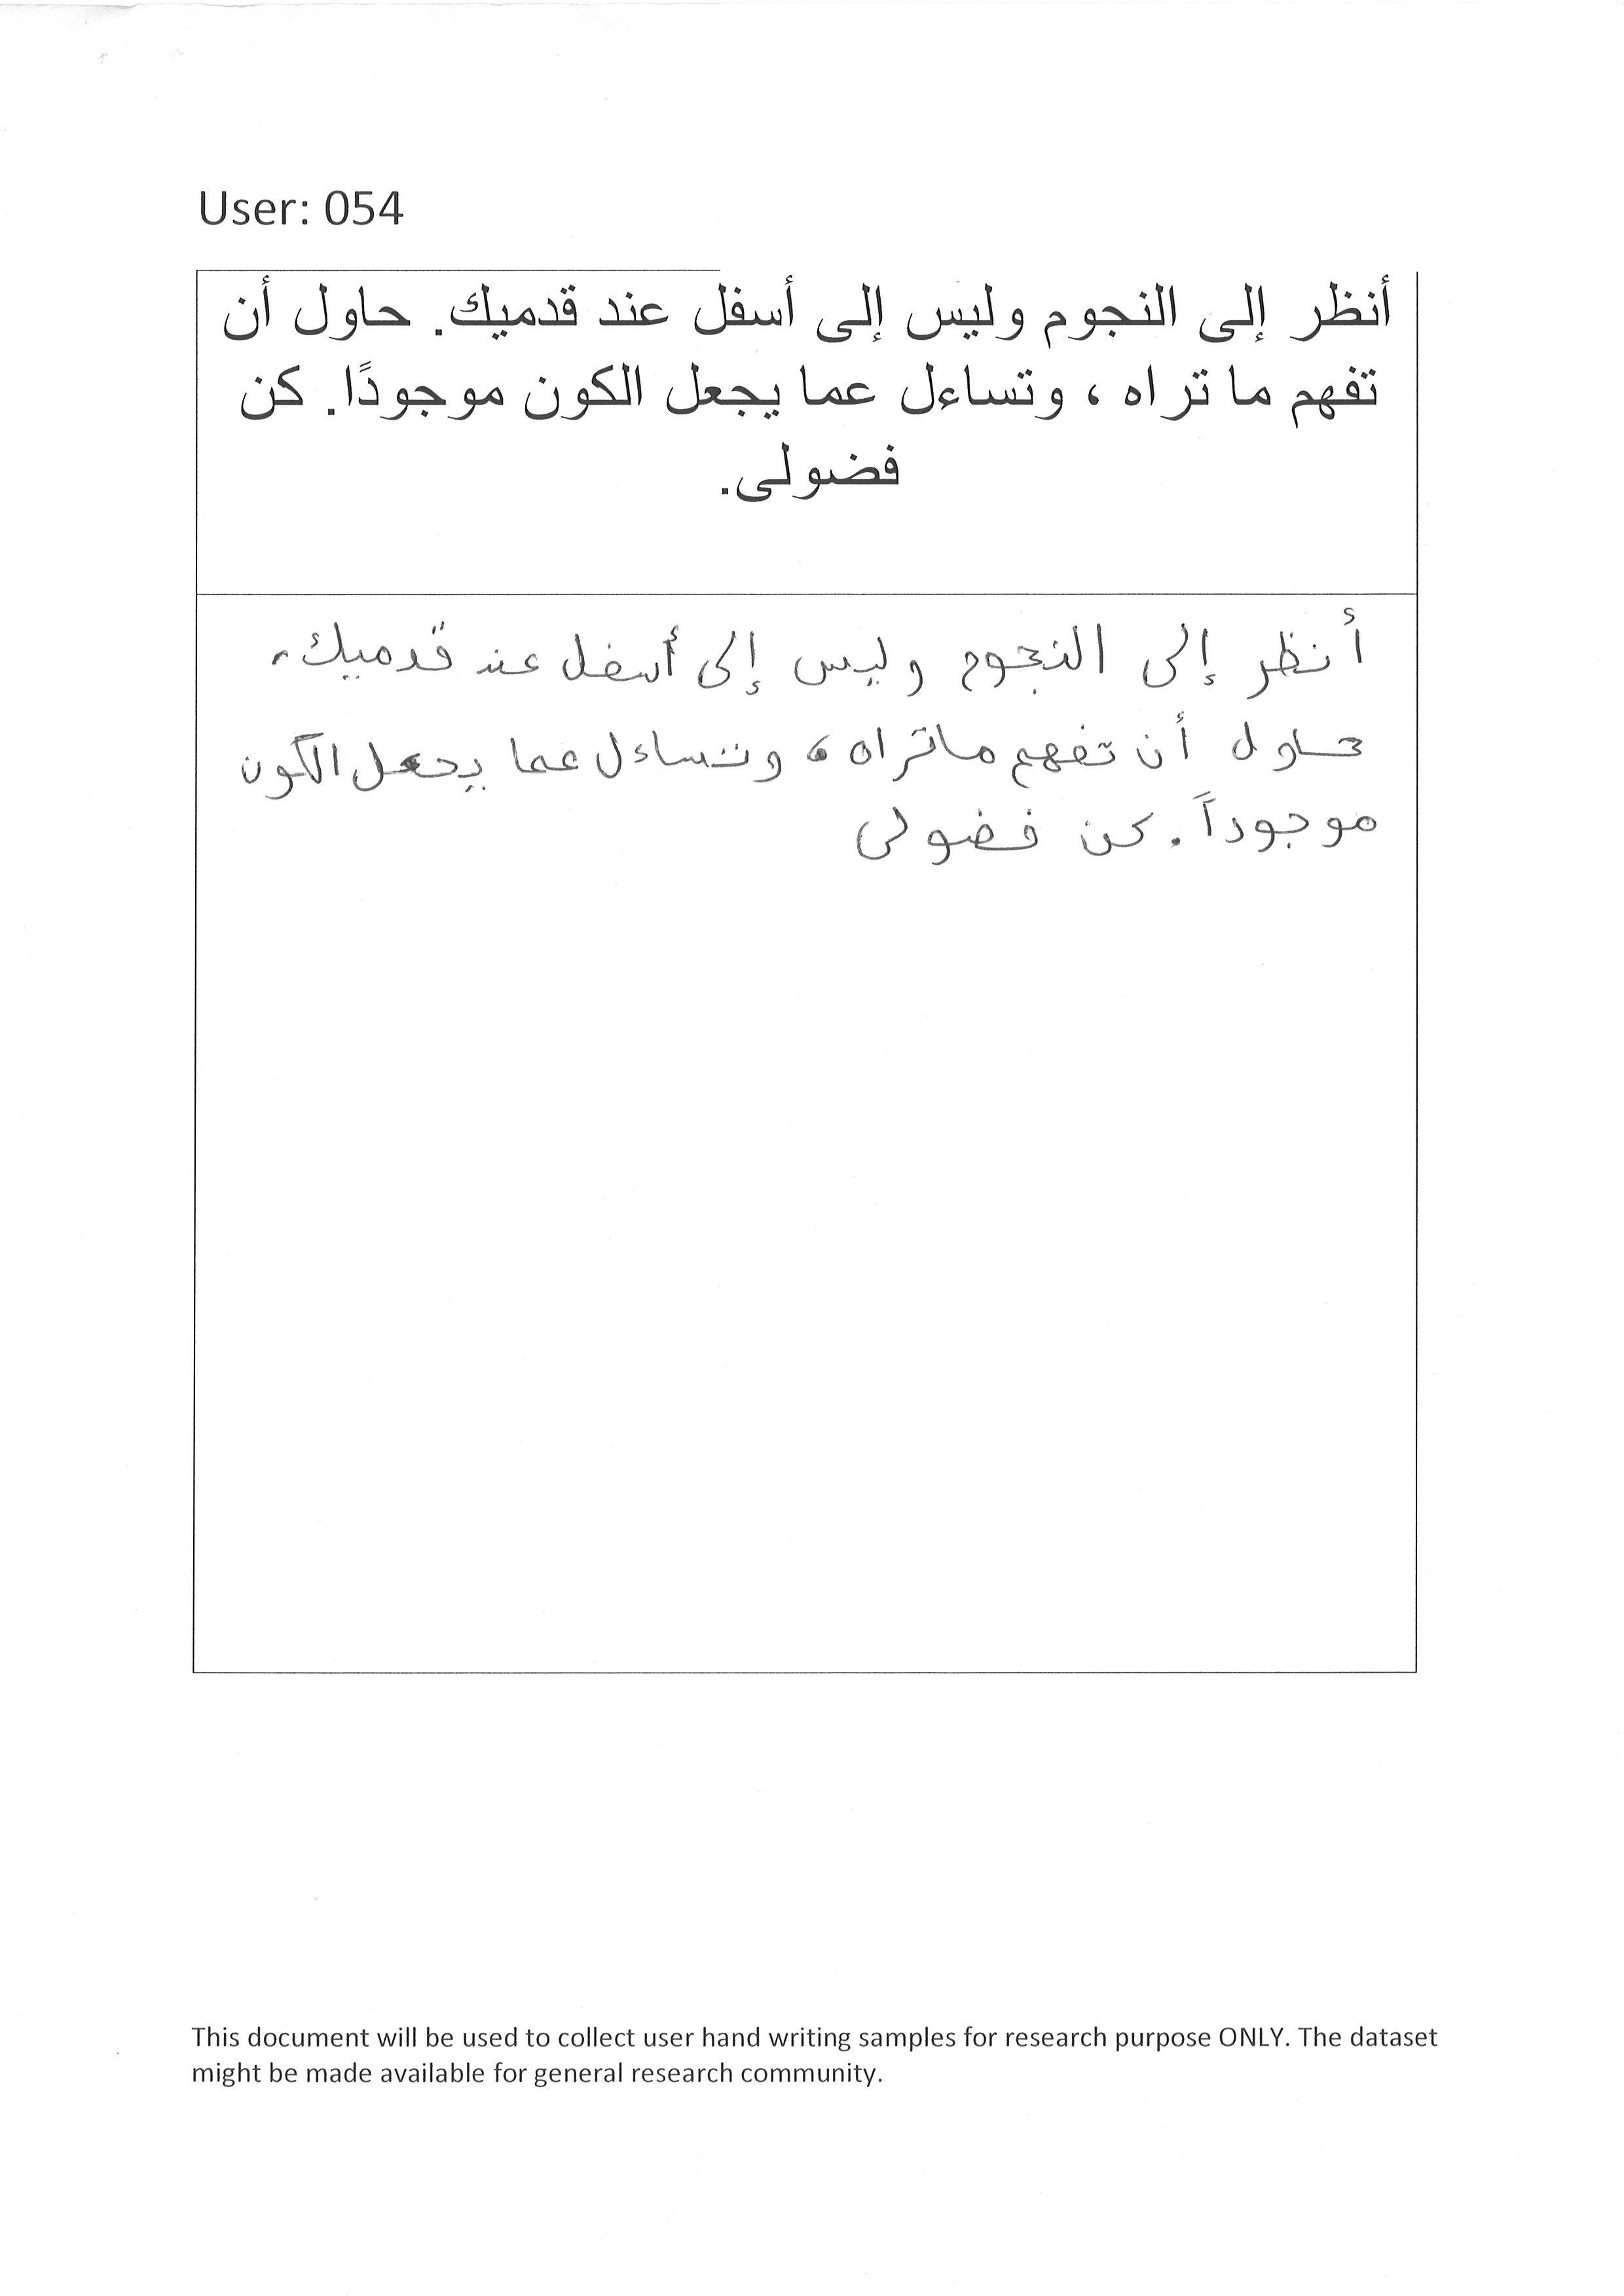 User: 054
أنظر إلى النجوم وليس إلى أسفل عند قدميك. حاول أن
تفهم ما تراه ، وتساءل عما يجعل الكون موجودًا. كن
فضولى.
أنظر إلى النجوم وليس إلى أسفل عند قدميك.
حاول أن تفهم ماتراه ، وتساءل عما يجعل الكون
موجوداً. كن فضولى
This document will be used to collect user hand writing samples for research purpose ONLY. The dataset
might be made available for general research community.